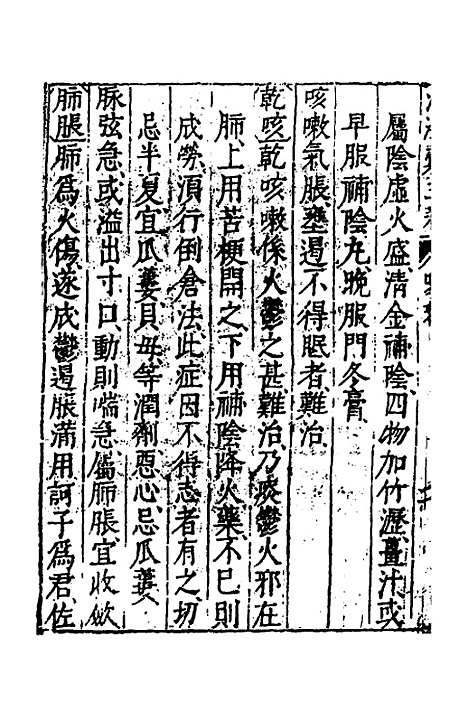 屬陰虛火盛、清金補陰、四物加竹瀝薑汁、或
早服補陰丸、晚服門冬膏、
咳嗽氣脹、壅遏不得眠者難治、
乾咳、乾咳嗽係火鬱之甚難治、乃痰鬱火邪在
肺、上用苦梗開之、下用補陰降火藥、不已則
成勞、須行倒倉法、此症因不得志者有之、切
忌半夏、宜瓜蔞貝母等潤劑、惡心忌瓜蔞、
脉弦急、或溢出寸口、動則喘急、屬肺脹、宜收斂
肺脹肺爲火傷、遂成鬱遏脹滿、用訶子爲君、佐